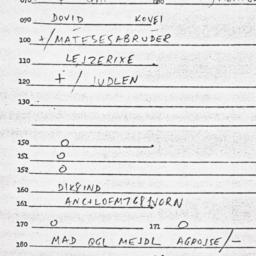 090 DOVID KOVEI
100 +/MATESESABRUDER
110 LEIZERIXE
120 +/ JUDLEN
130
150 0
151 0
152 0
160 DIKSIND
161
170 0 171 0
180 MAD QGL MEJDL AGROJSE/-